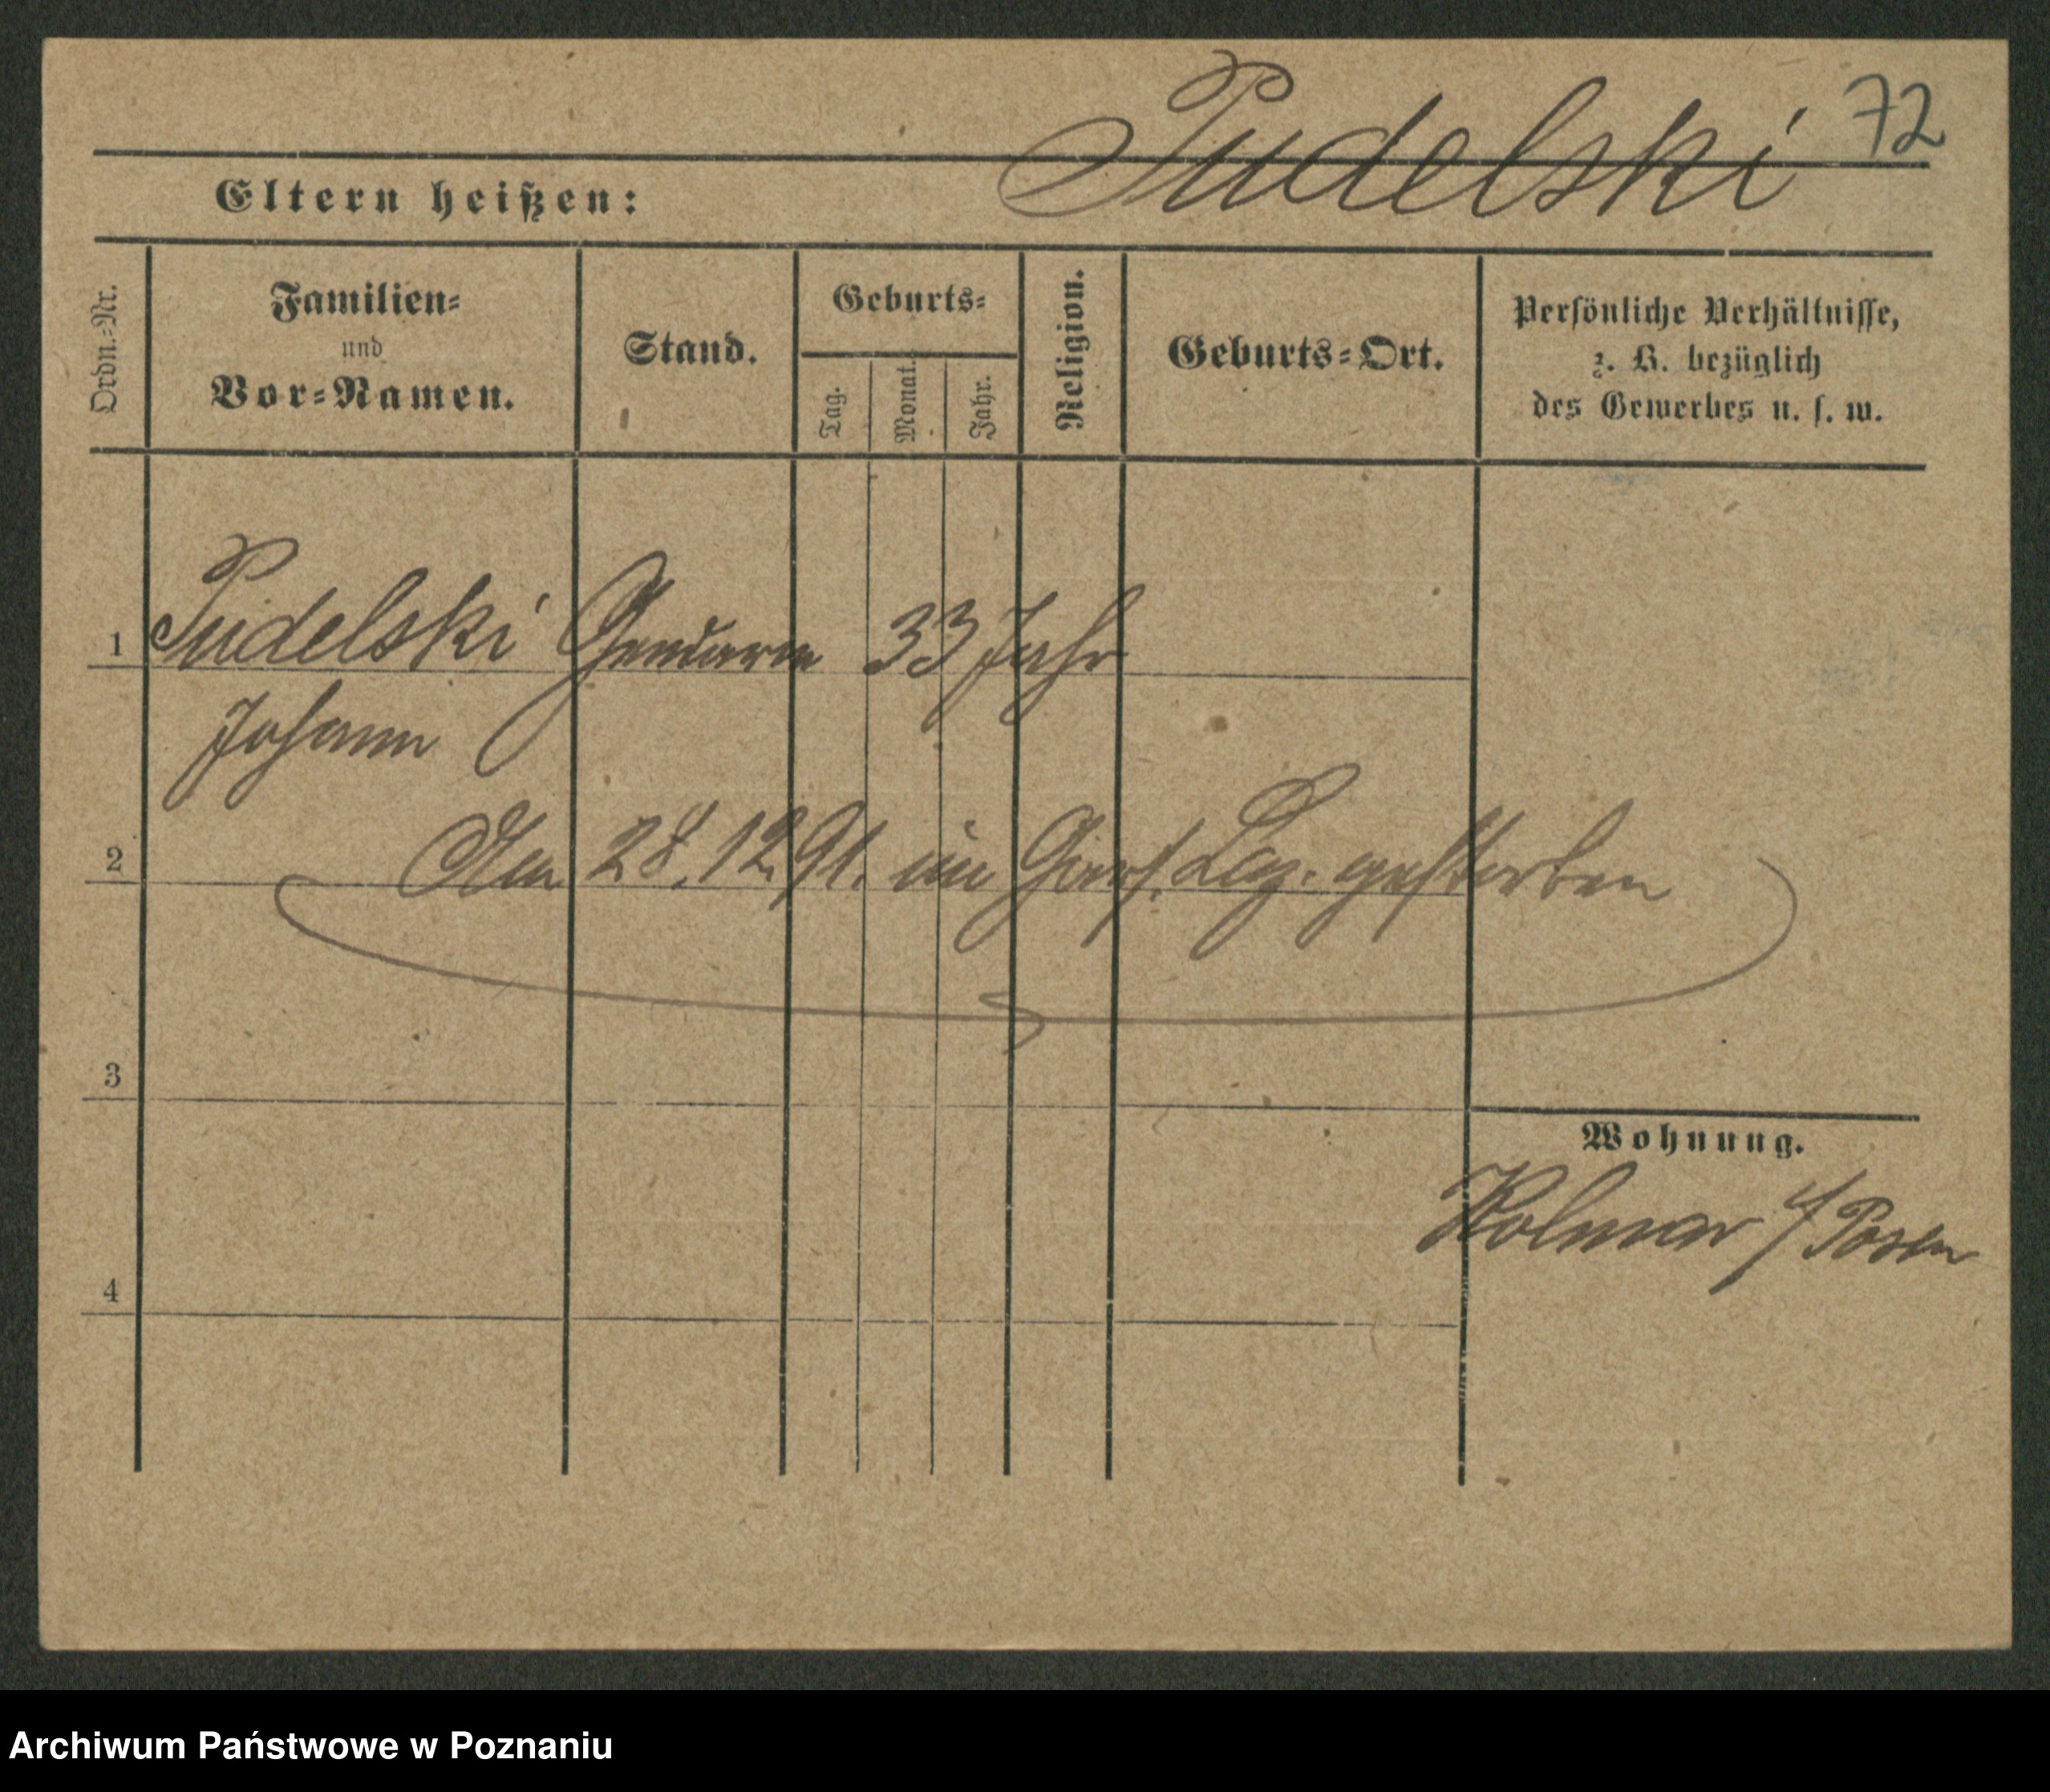 Pudelski 72
Eltern heißen:
Ordn.-Nr.
Familien-
und
Vor-Namen.
Stand.
Geburts-
Tag.
Monat.
Jahr.
Religion.
Geburts-Ort.
Persönliche Verhältnisse,
z. B. bezüglich
des Gewerbes u. s. w.
1 Pudelski Gendarm 33 Jahr
Johann
2 Am 28.12.91. im Gars. Laz. gestorben
3
Wohnung.
Kolmar i/Posen
4
Archiwum Państwowe w Poznaniu